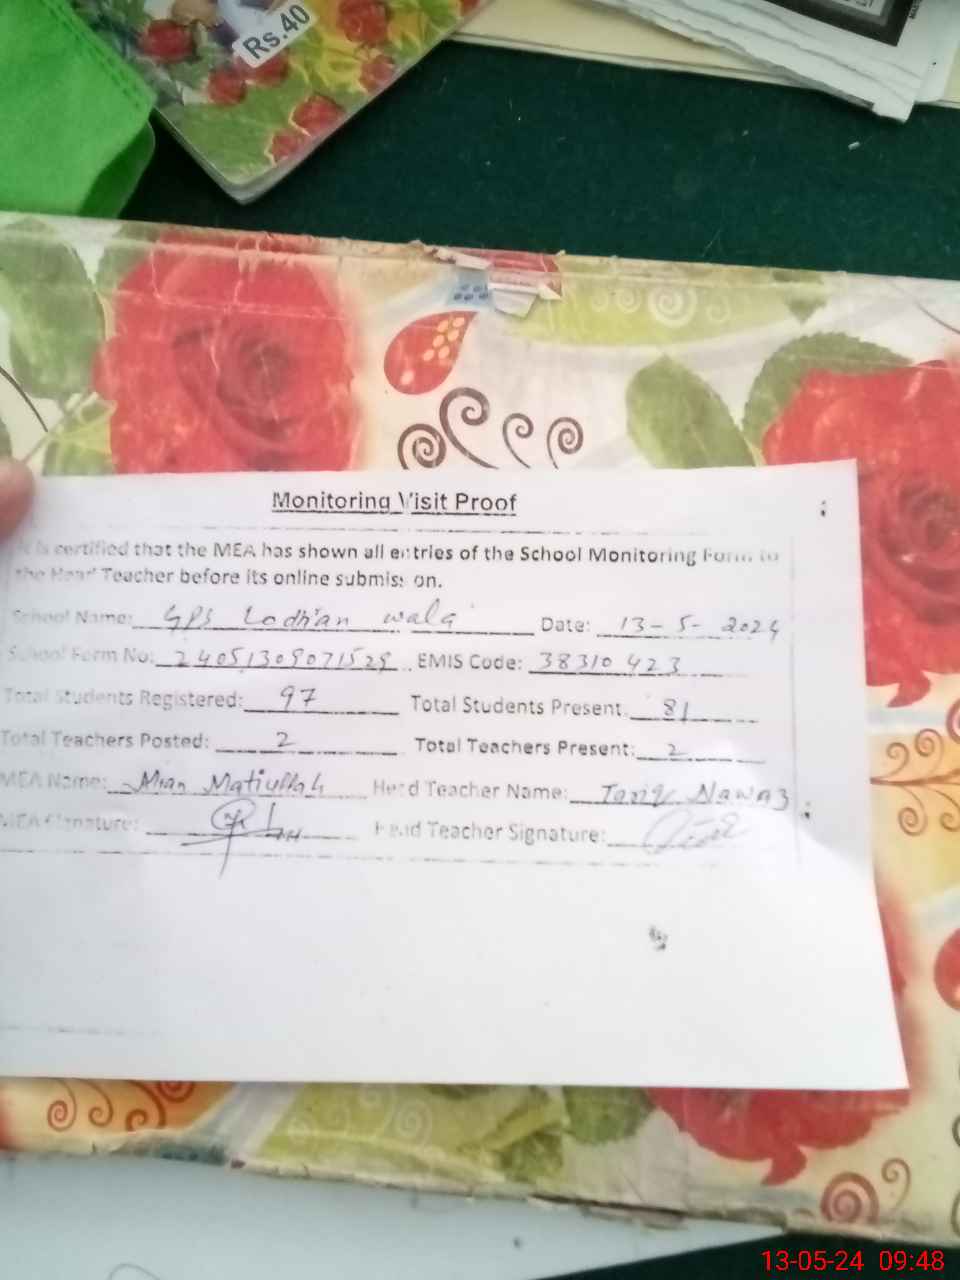 Rs.40
Monitoring Visit Proof
It is certified that the MEA has shown all entries of the School Monitoring Form to
the Head Teacher before its online submission.
School Name: GPS Lodhian wala Date: 13-5-2024
School Form No: 24051309071529 EMIS Code: 38310423
Total Students Registered: 97 Total Students Present: 81
Total Teachers Posted: 2 Total Teachers Present: 2
MEA Name: Mian Matiullah Head Teacher Name: Tariq Nawaz
MEA Signature: Head Teacher Signature:
13-05-24 09:48